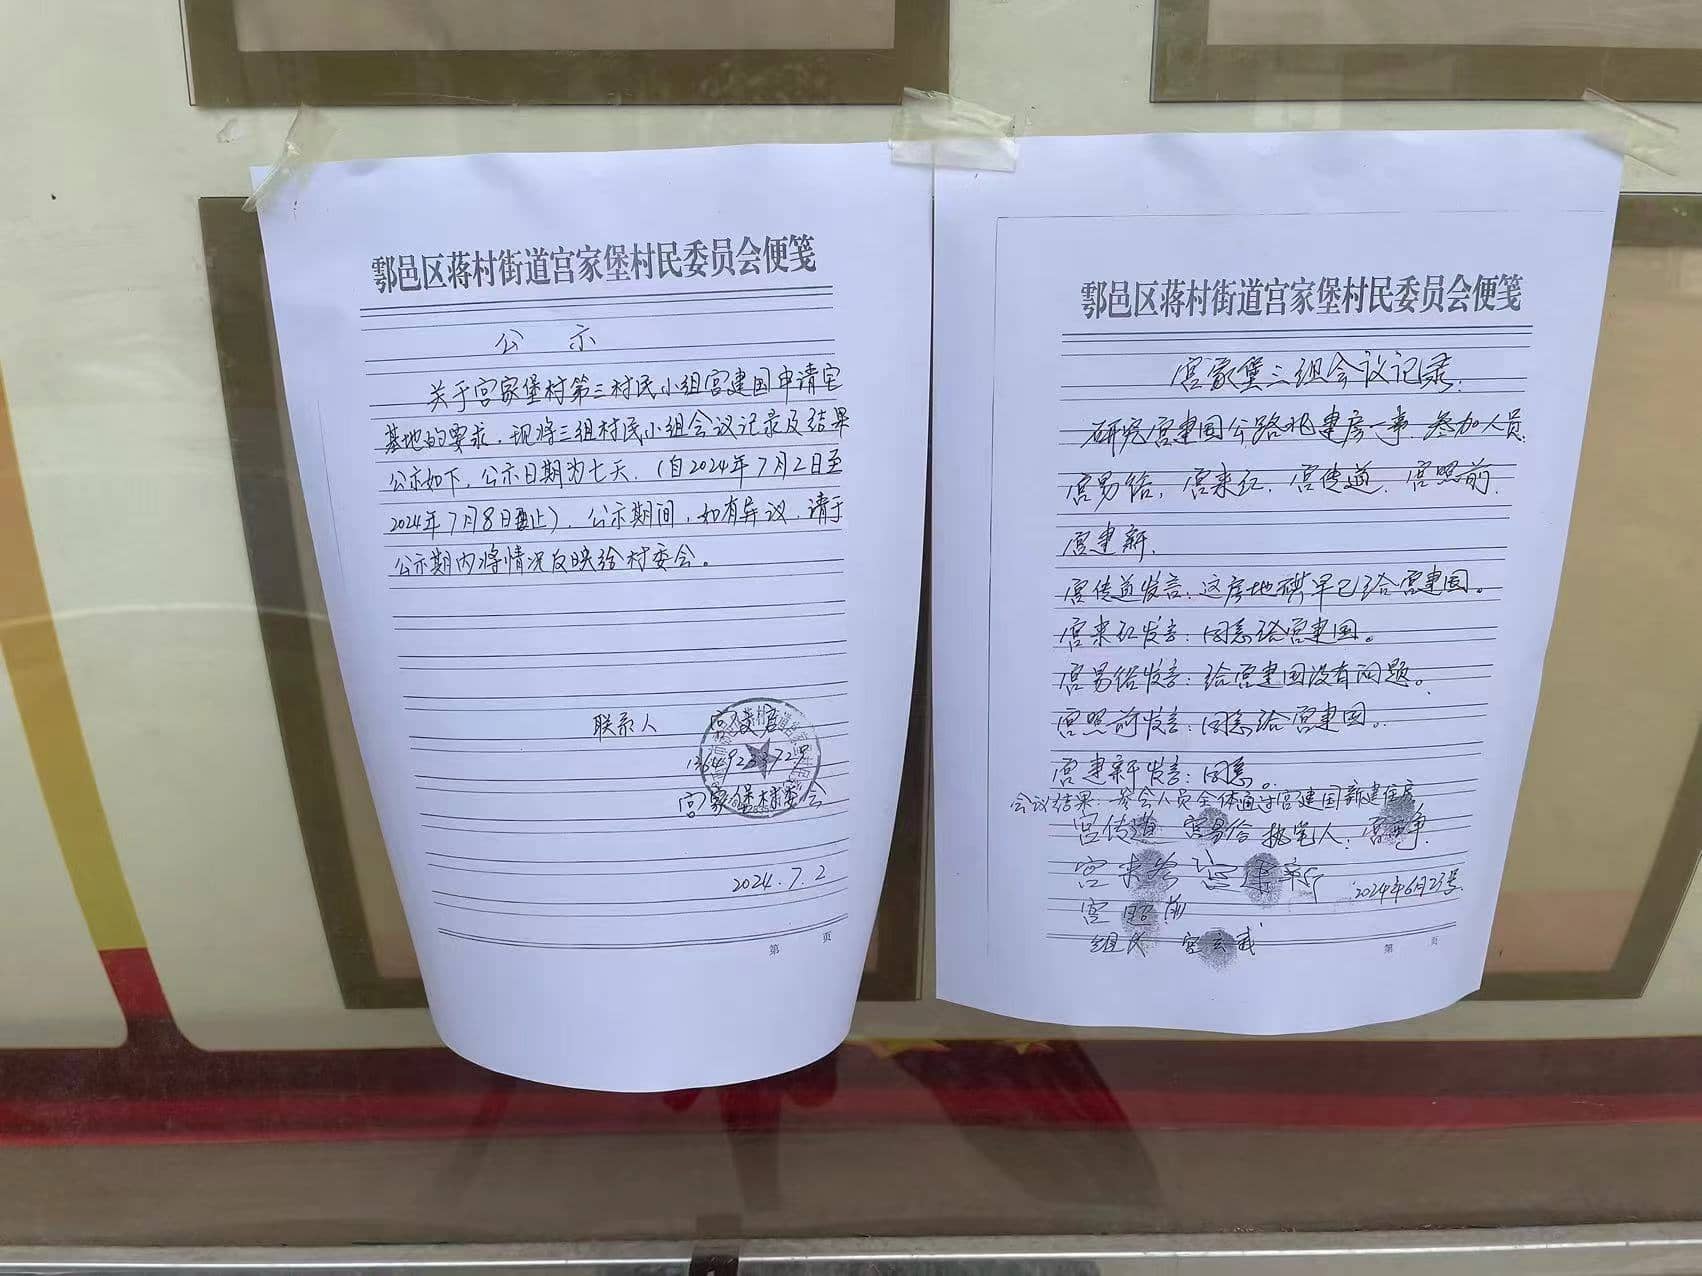 鄠邑区蒋村街道宫家堡村民委员会便笺
公示
关于宫家堡村第三村民小组宫建国申请宅
基地的要求,现将三组村民小组会议记录及结果
公示如下,公示日期为七天.(自2024年7月2日至
2024年7月8日止).公示期间,如有异议,请于
公示期内将情况反映给村委会。
联系人
宫家堡村委会
2024.7.2
第 页
鄠邑区蒋村街道宫家堡村民委员会便笺
宫家堡三组会议记录.
研究宫建国公路北建房一事.参加人员
宫易俗,宫来红.宫传道.宫照前.
宫建新.
宫传道发言:这房地基早已给宫建国。
宫来红发言:同意给宫建国。
宫易俗发言:给宫建国没有问题。
宫照前发言:同意给宫建国.
宫建新发言:同意。
会议结果:参会人员全体通过宫建国新建住房
宫传道 宫易俗 执笔人:
宫建新
2024年6月23号.
宫照前
组长 宫玄武
第 页